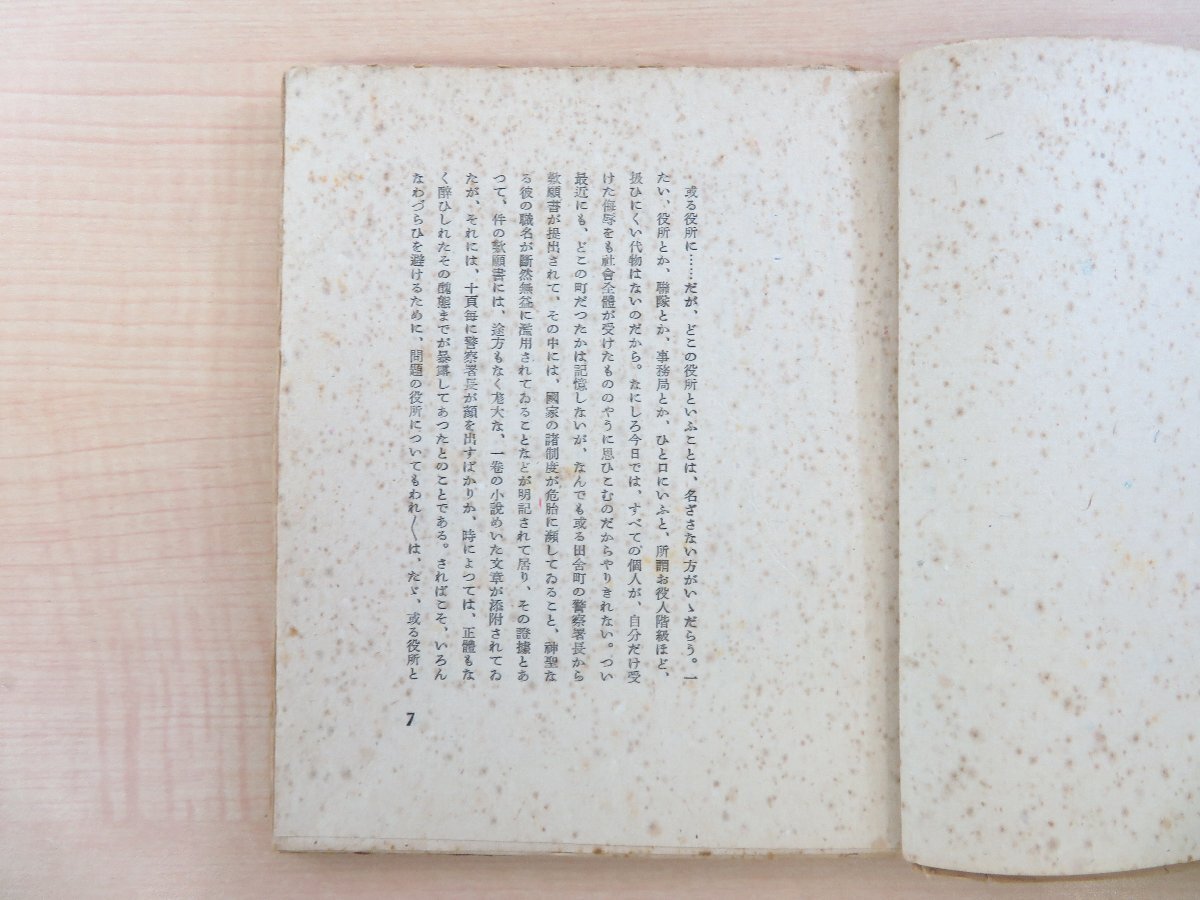 或る役所に……だが、どこの役所といふことは、名ざさない方がいゝだらう。一
たい、役所とか、聯隊とか、事務局とか、ひと口にいふと、所謂お役人階級ほど、
扱ひにくい代物はないのだから。なにしろ今日では、すべての個人が、自分だけ受
けた侮辱をも社會全體が受けたもののやうに思ひこむのだからやりきれない。つい
最近にも、どこの町だつたかは記憶しないが、なんでも或る田舍町の警察署長から
歎願書が提出されて、その中には、國家の諸制度が危胎に瀕してゐること、神聖な
る彼の職名が斷然無益に濫用されてゐることなどが明記されて居り、その證據とあ
つて、件の歎願書には、途方もなく尨大な、一卷の小説めいた文章が添附されてゐ
たが、それには、十頁每に警察署長が顏を出すばかりか、時によつては、正體もな
く醉ひしれたその醜態までが暴露してあつたとのことである。さればこそ、いろん
なわづらひを避けるために、問題の役所についてもわれ〳〵は、たゞ、或る役所と
7